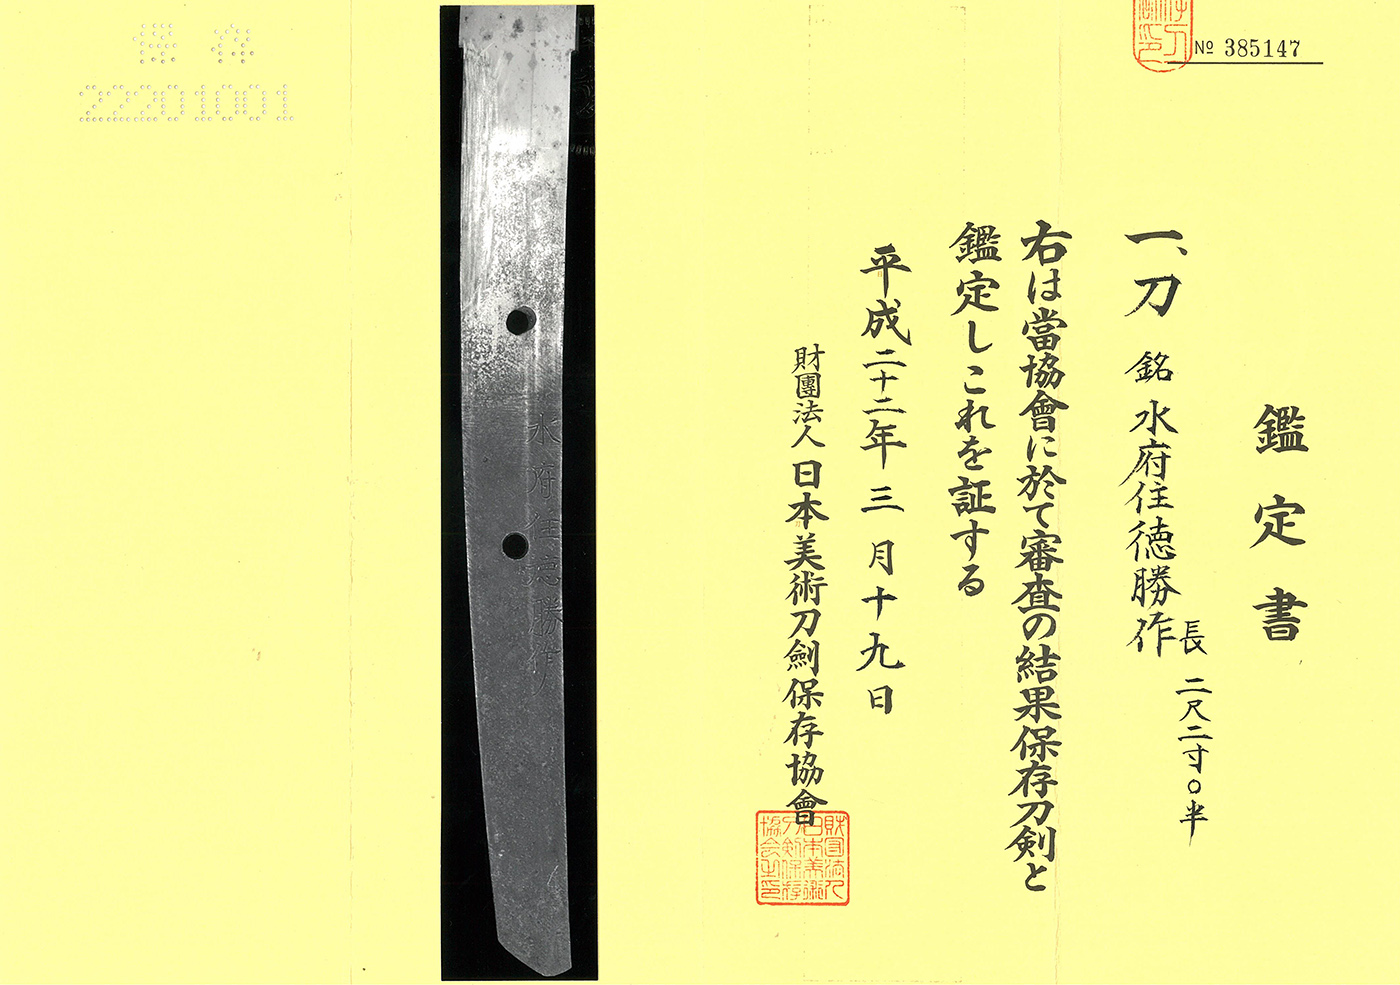 № 385147
鑑定書
一、刀 銘 水府住徳勝作
長 二尺二寸〇半
右は當協會に於て審査の結果保存刀剣と
鑑定しこれを証する
平成二十二年三月十九日
財團法人 日本美術刀劍保存協會
財団法人
日本美術
刀剣保存
協会之印
水府住徳勝作
保存
22201001